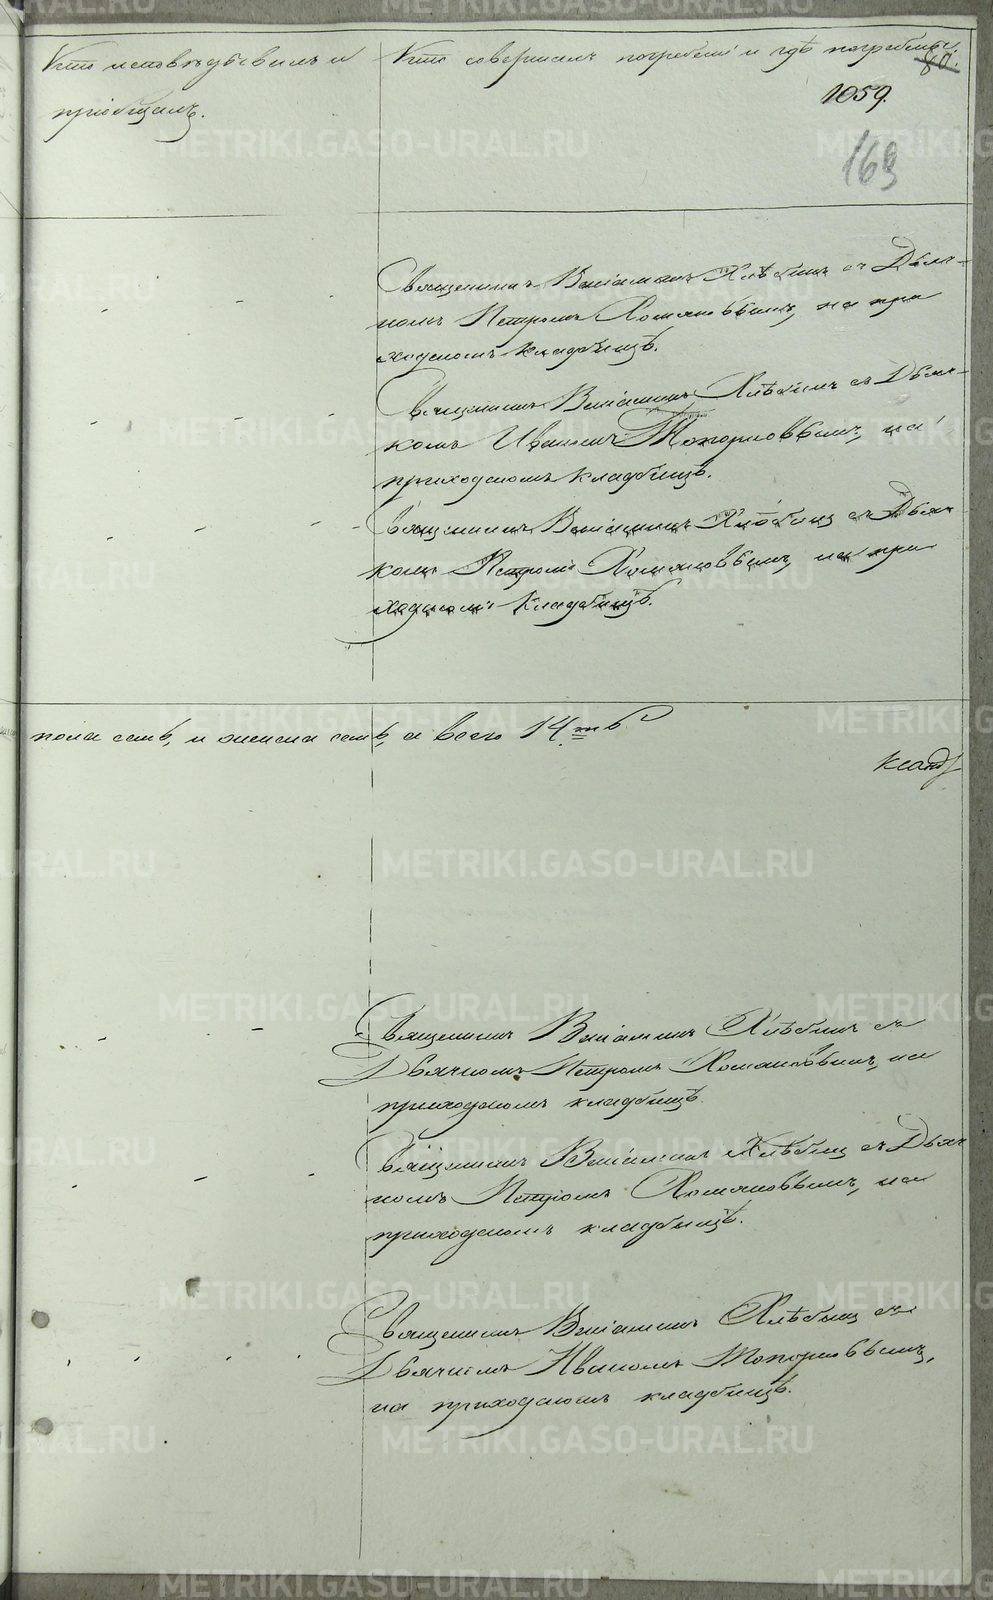 Кто исповѣдывалъ и
пріобщалъ.
Кто совершалъ погребеніе и гдѣ погребены.
80.
1059.
169
Священникъ Веніаминъ Хлѣбинъ съ Дьяч-
комъ Петромъ Романовымъ, на при
ходскомъ кладбищѣ.
Священникъ Веніаминъ Хлѣбинъ съ Дьяч-
комъ Иваномъ Топорковымъ, на
приходскомъ кладбищѣ.
Священникъ Веніаминъ Хлѣбинъ съ Дьяч
комъ Петромъ Романовымъ, на при
ходскомъ кладбищѣ.
пола семь, и женска семь, а всего 14.ть
Священникъ Веніаминъ Хлѣбинъ съ
Дьячкомъ Петромъ Романовымъ, на
приходскомъ кладбищѣ.
Священникъ Веніаминъ Хлѣбинъ съ Дьяч
комъ Петромъ Романовымъ, на
приходскомъ кладбищѣ.
Священникъ Веніаминъ Хлѣбинъ съ
Дьячкомъ Иваномъ Топорковымъ,
на приходскомъ кладбищѣ.
METRIKI.GASO-URAL.RU